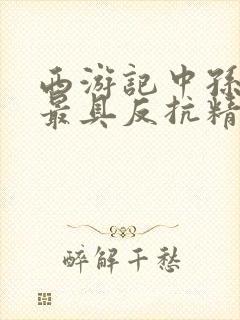 西游記中孫
最具反抗精
醉解千愁